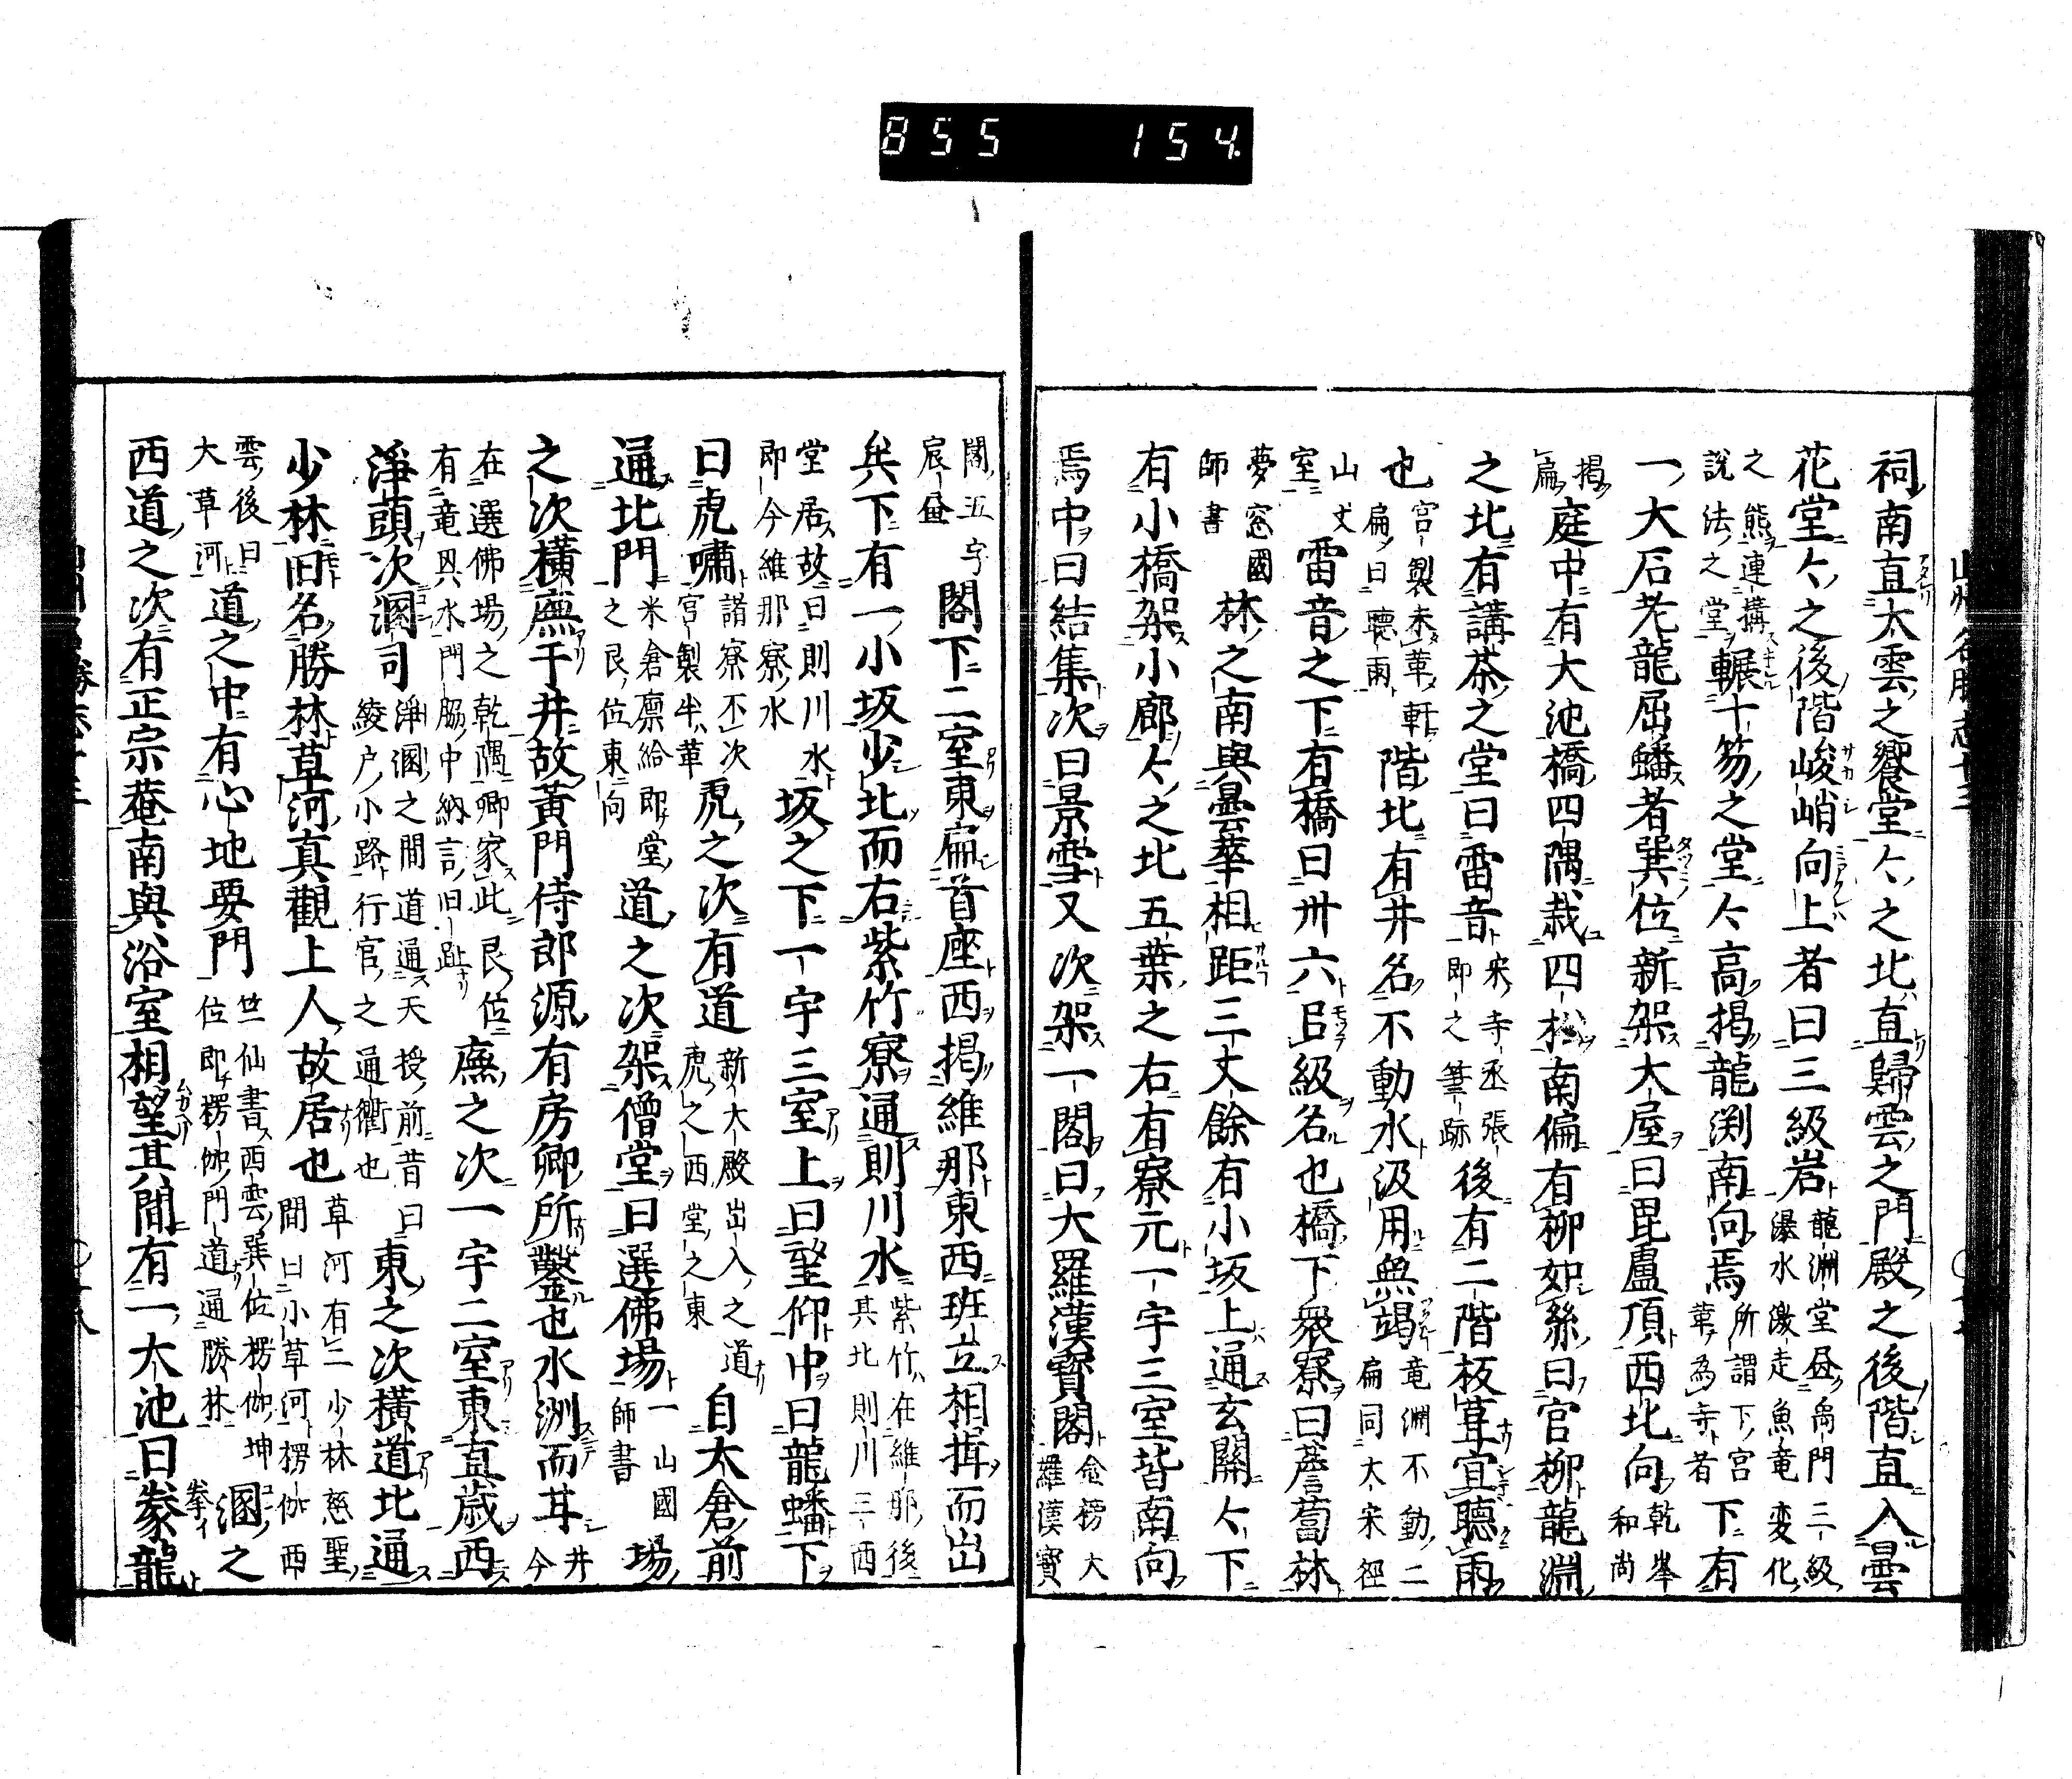 855 154
祠南直太雲之饗堂々之北直歸雲之門殿之後階直入曇
花堂々之後階峻峭向上者曰三級岩龍淵堂昼禹門三級
瀑水激走魚竜変化
之熊連搆
說法之堂輾十笏之堂々高揭龍渕南向焉所謂下宮
華為寺者下有
一大石老龍屈蟠者巽位新架大屋曰毘盧頂西北向乾峯
和尚
揭
扁庭中有大池橋四隅栽四松南偏有柳如絲曰官柳龍淵
之北有講茶之堂曰雷音宋寺丞張
即之筆跡後有二階板葺宜聽雨
也宮製未華軒
扁曰聽雨階北有井名不動水汲用無竭竜淵不動二
扁同大宋徑
山丈
室雷音之下有橋曰卅六呂級名也橋下衆寮曰薝蔔林
夢窓國
師書林之南與曇華相距三丈餘有小坂上通玄關々下
有小橋架小廊々之北五葉之右有寮元一宇三室皆南向
焉中曰結集次曰景雪又次架一閣曰大羅漢寶閣金榜大
羅漢寶
閣五字
宸畫閣下二室東扁首座西揭維那東西班立相揖而出
矣下有一小坂少北而右紫竹寮通則川水紫竹在維那後
其北則川三西
堂居故曰則川水
即今維那寮水坂之下一宇三室上曰望仰中曰龍蟠下
曰虎嘯諸寮不次
宮製半華虎之次有道新大殿出入之道
虎之西堂之東自太倉前
通北門米倉廪給即堂
之艮位東向道之次架僧堂曰選佛場一山國
師書場
之次橫廡于井故黃門侍郎源有房卿所鑿也水洌而耳井
今
在選佛場之乾隅卿家此艮位
有竜興水門脇中納言旧趾廡之次一宇二室東直歲西
淨頭次溷司淨溷之間道通天授前昔曰
綾户小路行官之通衢也東之次橫道北通
少林旧名勝林草河真觀上人故居也草河有二少林慈聖
間曰小草河楞伽西
雲後曰
大草河道之中有心地要門竺仙書西雲巽位楞伽坤
位即楞伽門道通勝林溷之
西道之次有正宗菴南與浴室相望其間有一大池曰豢龍